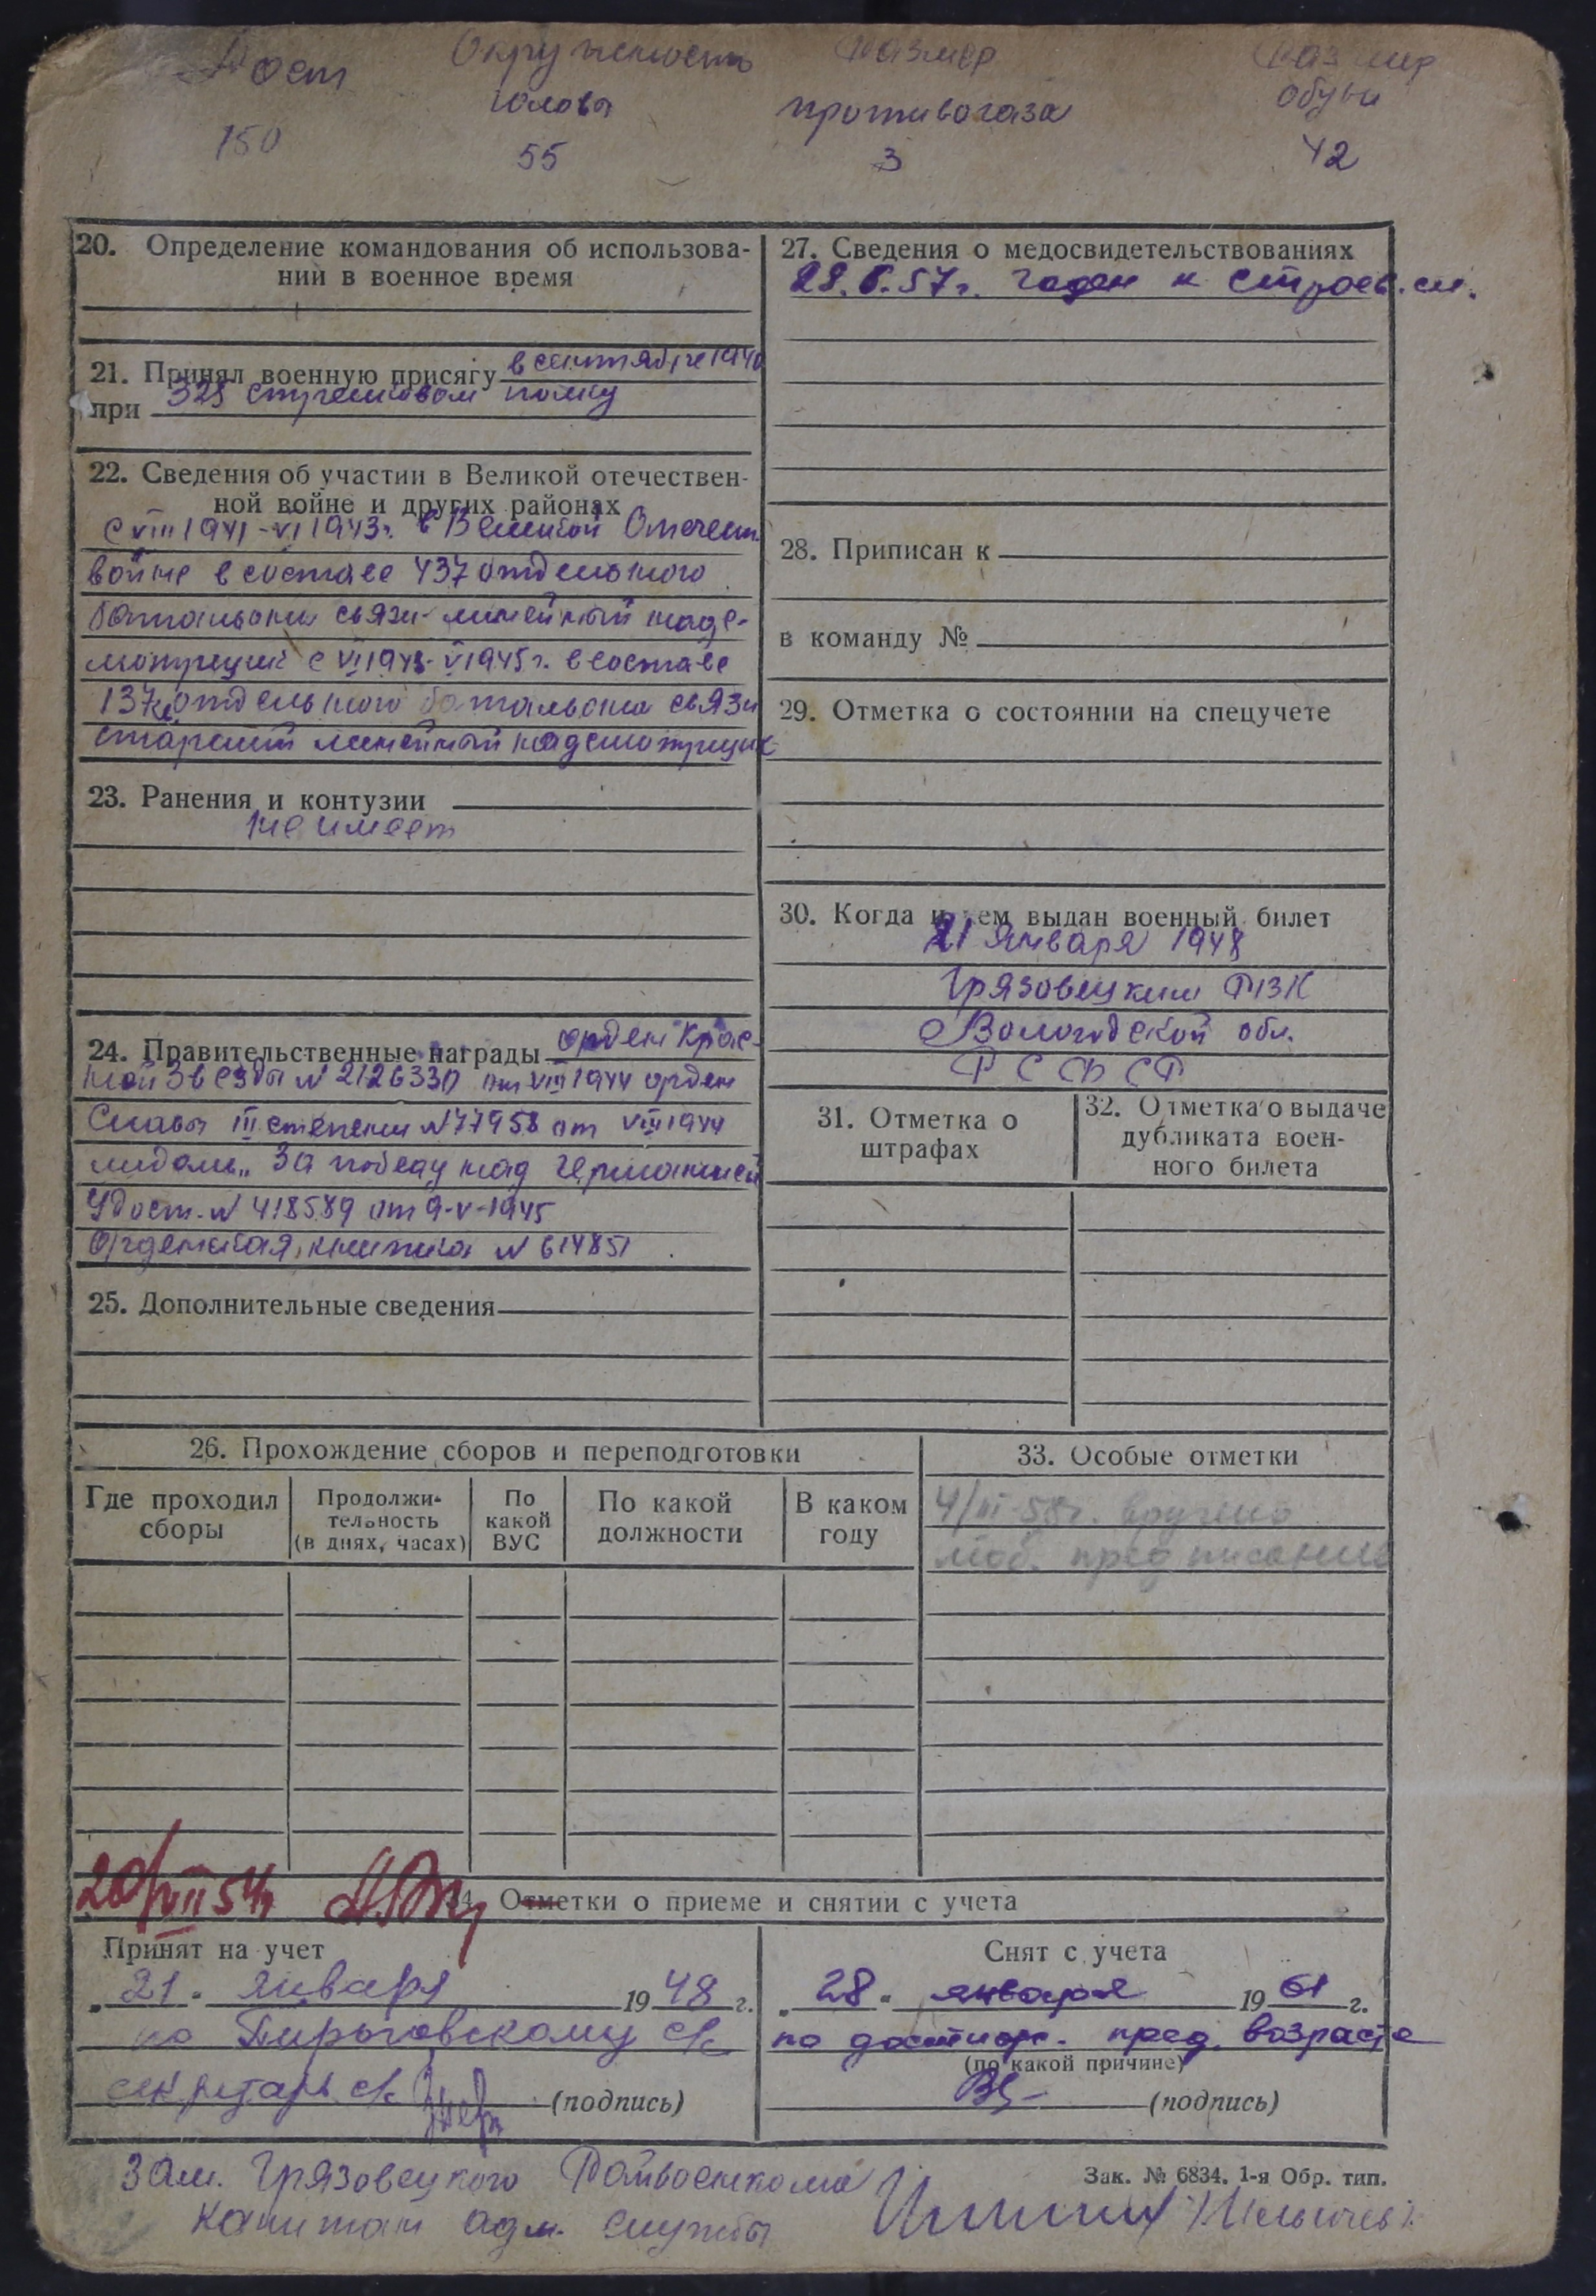 Рост Окружность Размер Размер
головы противогаза обуви
150 55 3 42
20. Определение командования об использова-
нии в военное время
21. Принял военную присягу в сентябре 1940
при 325 стрелковом полку
22. Сведения об участии в Великой отечествен-
ной войне и других районах
с VIII 1941 - VI 1943г. в Великой Отечеств.
войне в составе 437 отдельного
батальона связи - линейный надс-
мотрщик с VI 1943 - V 1945 г. в составе
137 отдельного батальона связи
старший линейный надсмотрщик
23. Ранения и контузии
не имеет
24. Правительственные награды орден Крас-
ной Звезды № 2126330 от VIII 1944 орден
Славы III степени № 77958 от VIII 1944
медаль „За победу над Германией
Удост. № 418589 от 9-V-1945
Орденская книжка № 614851
25. Дополнительные сведения
27. Сведения о медосвидетельствованиях
28.6.57г. годен к строев. сл.
28. Приписан к
в команду №
29. Отметка о состоянии на спецучете
30. Когда и кем выдан военный билет
21 Января 1948
Грязовецким РВК
Вологодской обл.
РСФСР
31. Отметка о
штрафах
32. Отметка о выдаче
дубликата воен-
ного билета
26. Прохождение сборов и переподготовки
Где проходил
сборы
Продолжи-
тельность
(в днях, часах)
По
какой
ВУС
По какой
должности
В каком
году
33. Особые отметки
4/III-58г. вручено
моб. предписание
20/VII 54
34. Отметки о приеме и снятии с учета
Принят на учет
„21" января 1948 г.
по Пироговскому с/с
секретарь с/с (подпись)
Снят с учета
„28" января 1961 г.
по достиж. пред. возраста
(по какой причине)
(подпись)
Зам. Грязовецкого Райвоенкома
Капитан адм. службы
Зак. № 6834. 1-я Обр. тип.